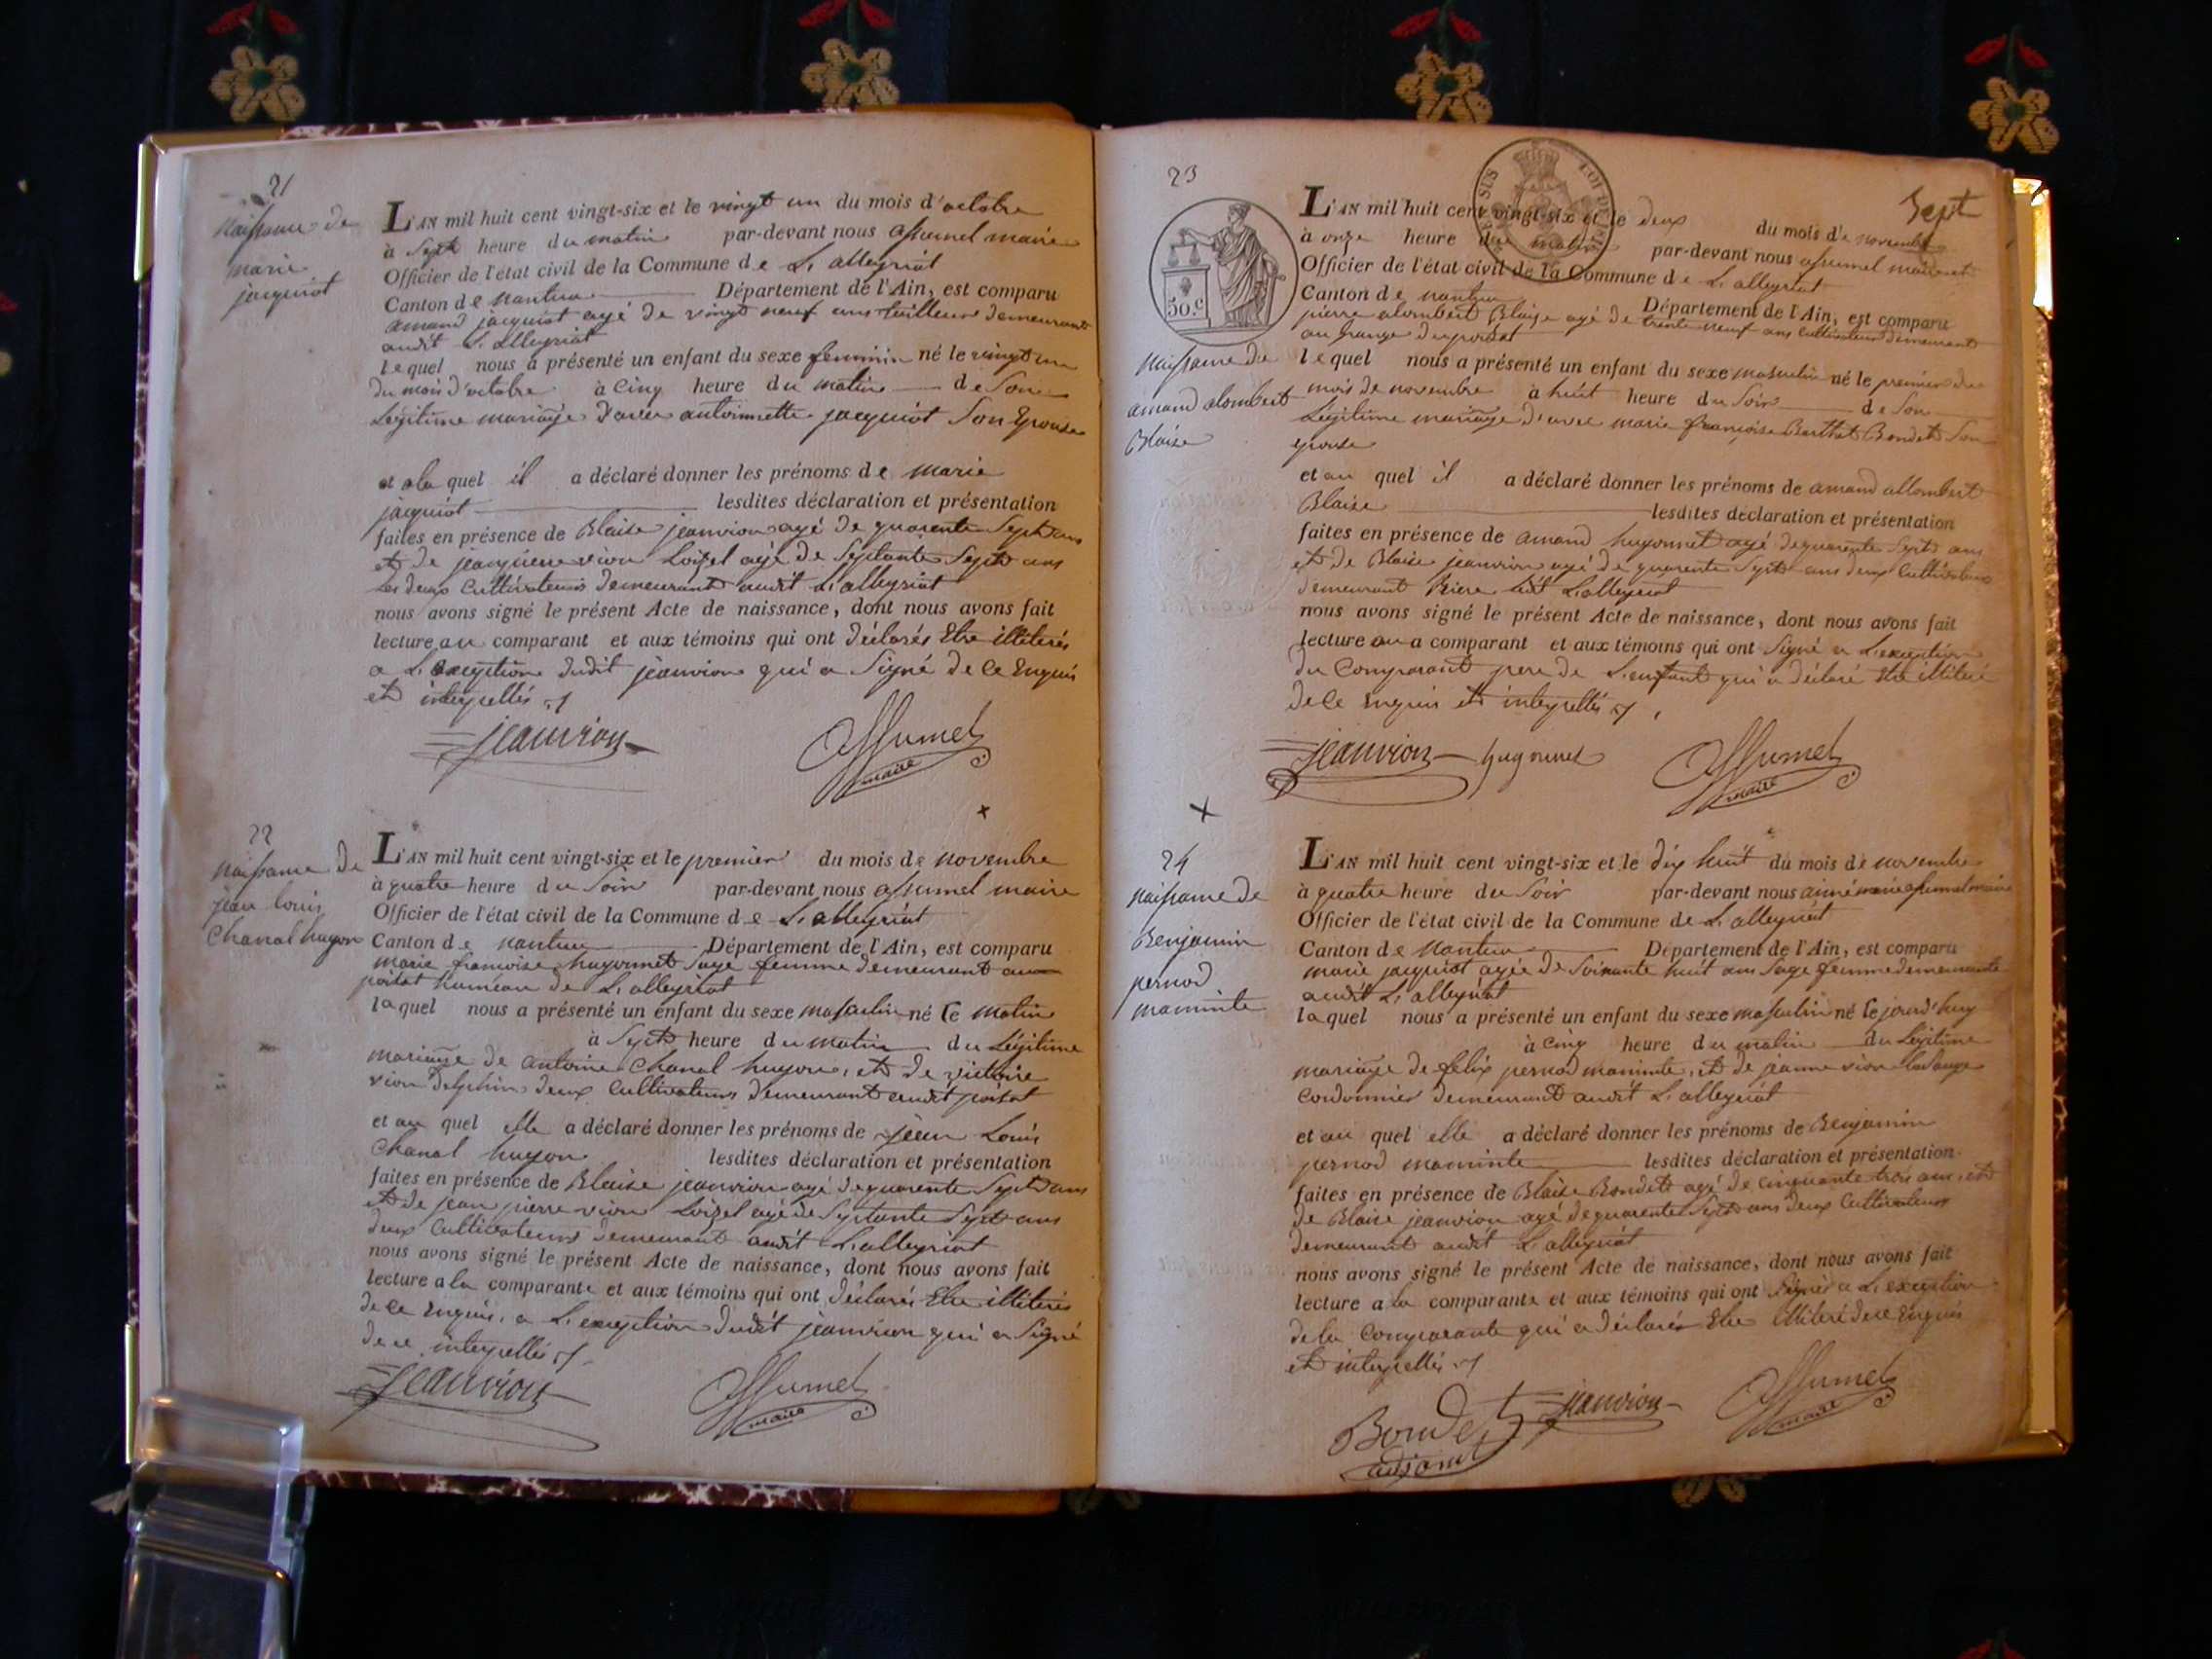 21
naissance de
marie
jacquiot
L'AN mil huit cent vingt-six et le vingt un du mois d'octobre
à Sept heure du matin par-devant nous assumel maire
Officier de l'état civil de la Commune de L'alleyriat
Canton de nantua Département de l'Ain, est comparu
amand jacquiot agé de vingt neuf ans tailleur demeurant
audit L'alleyriat
lequel nous a présenté un enfant du sexe feminin né le vingt un
du mois d'octobre à Cinq heure du matin de Son
Légitime mariage d'avec antoinette jacquiot Son Epouse
et a la quel il a déclaré donner les prénoms de marie
jacquiot lesdites déclaration et présentation
faites en présence de Blaise jeanvion agé de quarente Sept ans
et de vion Loizel agé de Septante Sept ans
Les deux Cultivateurs demeurant audit L'alleyriat
nous avons signé le présent Acte de naissance, dont nous avons fait
lecture au comparant et aux témoins qui ont déclarés Etre illiterés
a L'exception dudit jeanvion qui a Signé de Ce Enquis
et interpellés
jeanvion
assumel
maire
22
naissance de
jean louis
Chanal hugon
L'AN mil huit cent vingt-six et le premier du mois de novembre
à quatre heure du Soir par-devant nous assumel maire
Officier de l'état civil de la Commune de L'alleyriat
Canton de nantua Département de l'Ain, est comparu
marie francoise hugonnet Sage femme demeurant au
poizat hameau de L'alleyriat
laquel nous a présenté un enfant du sexe masculin né Ce matin
à Sept heure du matin du Légitime
mariage de antoine Chanal hugon, et de victoire
vion delphin deux Cultivateurs demeurant audit poizat
et au quel elle a déclaré donner les prénoms de jean Louis
Chanal hugon lesdites déclaration et présentation
faites en présence de Blaise jeanvion agé de quarente Sept ans
et de jean pierre vion Loizel agé de Septante Sept ans
deux Cultivateurs demeurant audit L'alleyriat
nous avons signé le présent Acte de naissance, dont nous avons fait
lecture a la comparante et aux témoins qui ont déclarés Etre illiterés
de Ce Enquis, a L'exception dudit jeanvion qui a Signé
de ce interpellés
jeanvion
assumel
maire
23
Sept
50.c
naissance de
amand alombert
Blaise
L'AN mil huit cent vingt-six et le deux du mois de novembre
à onze heure du matin par-devant nous assumel maire
Officier de l'état civil de la Commune de L'alleyriat
Canton de nantua Département de l'Ain, est comparu
pierre alombert Blaise agé de trente neuf ans Cultivateur demeurant
au Grange du poizat
lequel nous a présenté un enfant du sexe masculin né le premier du
mois de novembre à huit heure du Soir de Son
Légitime mariage d'avec marie francoise Berthet Bondet Son
epouse
et au quel il a déclaré donner les prénoms de amand allombert
Blaise lesdites déclaration et présentation
faites en présence de amand hugonnet agé de quarente Sept ans
et de Blaise jeanvion agé de quarente Sept ans deux Cultivateurs
demeurant L'alleyriat
nous avons signé le présent Acte de naissance, dont nous avons fait
lecture au comparant et aux témoins qui ont Signé a L'exception
du Comparant pere de L'enfant qui a déclaré Etre illiteré
de Ce Enquis et interpellés
jeanvion
hugonnet
assumel
maire
24
naissance de
Benjamin
pernod
maminte
L'AN mil huit cent vingt-six et le dix huit du mois de novembre
à quatre heure du Soir par-devant nous aimé marie assumel maire
Officier de l'état civil de la Commune de L'alleyriat
Canton de Nantua Département de l'Ain, est comparu
marie jacquiot agée de Soixante huit ans Sage femme demeurante
audit L'alleyriat
laquel nous a présenté un enfant du sexe masculin né Ce jourd'huy
à cinq heure du matin du Légitime
mariage de felix pernod maminte, et de jeanne vion
Cordonnier demeurant audit L'alleyriat
et au quel elle a déclaré donner les prénoms de Benjamin
pernod maminte lesdites déclaration et présentation
faites en présence de Blaise Bondet agé de cinquante trois ans, et
de Blaise jeanvion agé de quarente Sept ans deux Cultivateurs
demeurant audit L'alleyriat
nous avons signé le présent Acte de naissance, dont nous avons fait
lecture a la comparante et aux témoins qui ont Signés a L'exception
de la Comparante qui a déclarés Etre illiteré de ce Enquis
et interpellés
Bondet
adjoint
jeanvion
assumel
maire